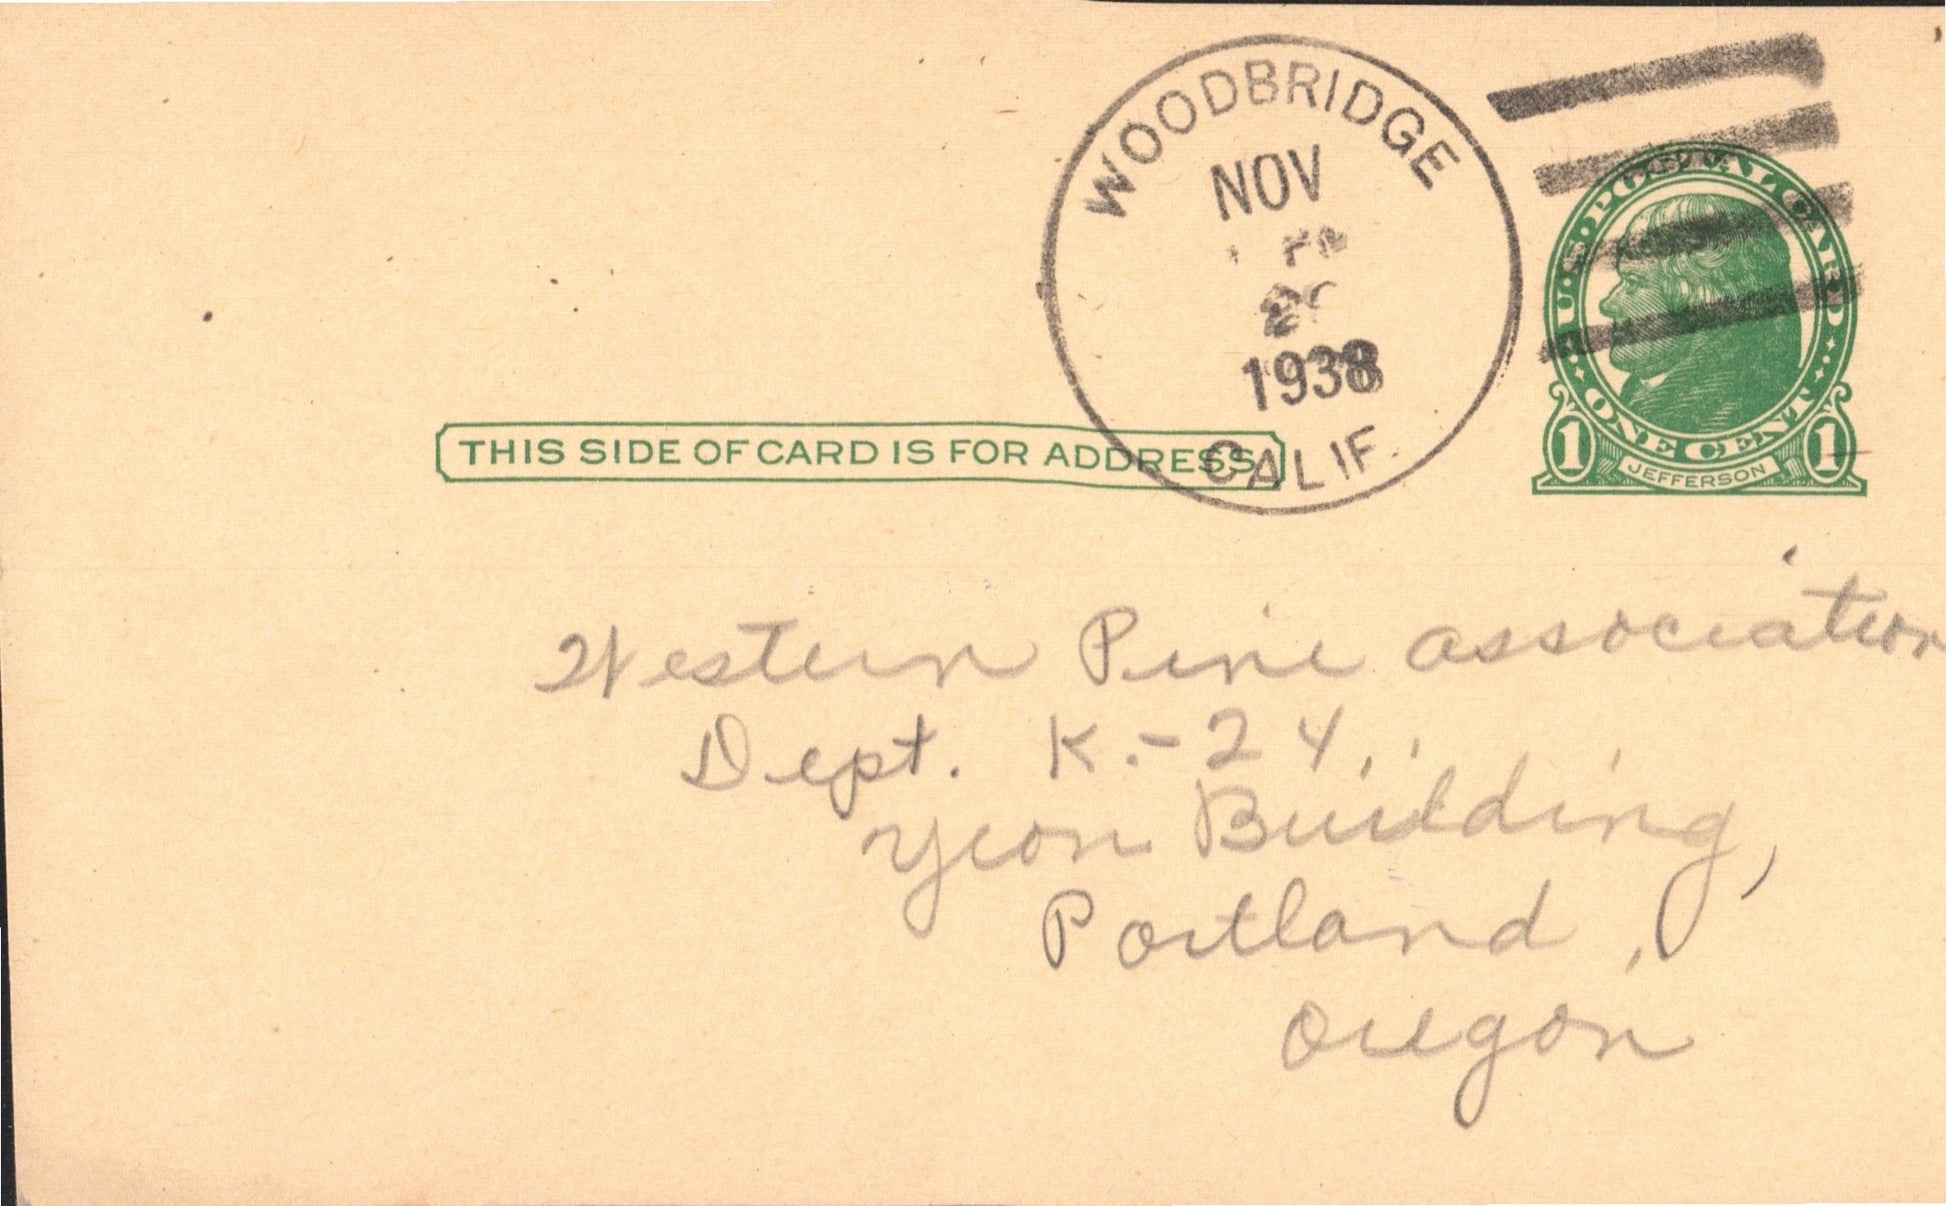 WOODBRIDGE
NOV
1938
CALIF.
U·S·POSTAL CARD
ONE CENT
1 JEFFERSON 1
THIS SIDE OF CARD IS FOR ADDRESS
Western Pine association
Dept. K.-24,
Yeon Building,
Portland,
Oregon